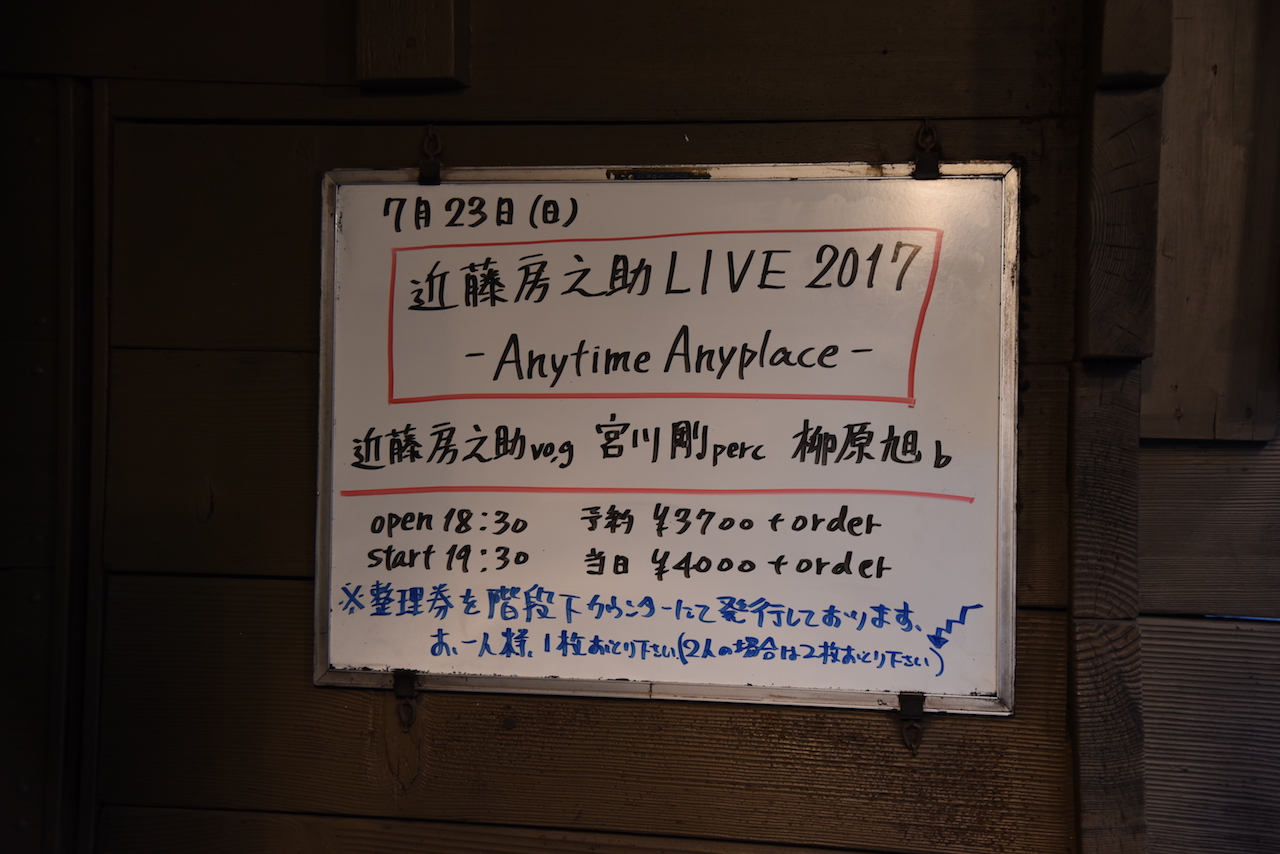 7月23日(日)
近藤房之助LIVE 2017
- Anytime Anyplace -
近藤房之助vo,g 宮川剛perc 柳原旭b
open 18:30 予約 ¥3700 + order
start 19:30 当日 ¥4000 + order
※整理券を階段下カウンターにて発行しております。
お一人様、1枚おとり下さい。(2人の場合は2枚おとり下さい)